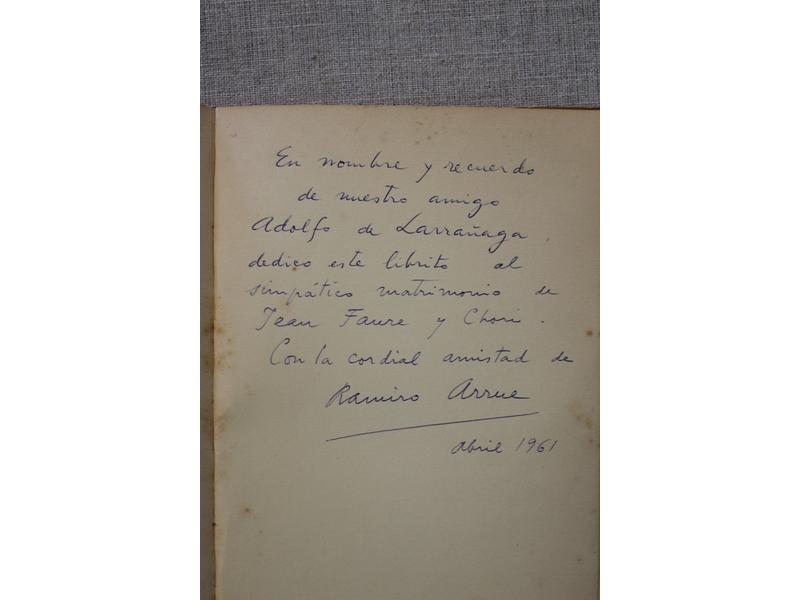 En nombre y recuerdo
de nuestro amigo
Adolfo de Larrañaga,
dedico este librito al
simpático matrimonio de
Jean Faure y Chori.
Con la cordial amistad de
Ramiro Arrue
abril 1961